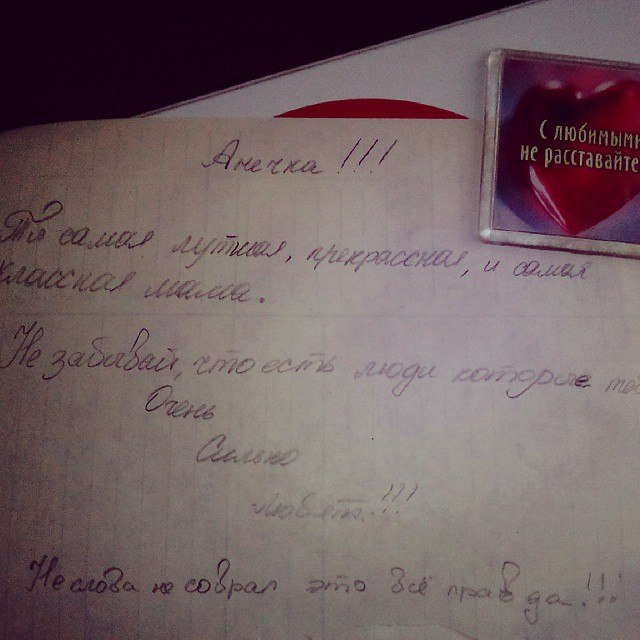 Анечка!!!
С любимыми
не расставайте
Ты самая лутшая, прекрассная, и самая
классная мама.
Не забывай, что есть люди которые теб
Очень
Сильно
Любят.!!!
Не слова не соврал это всё правда.!!!